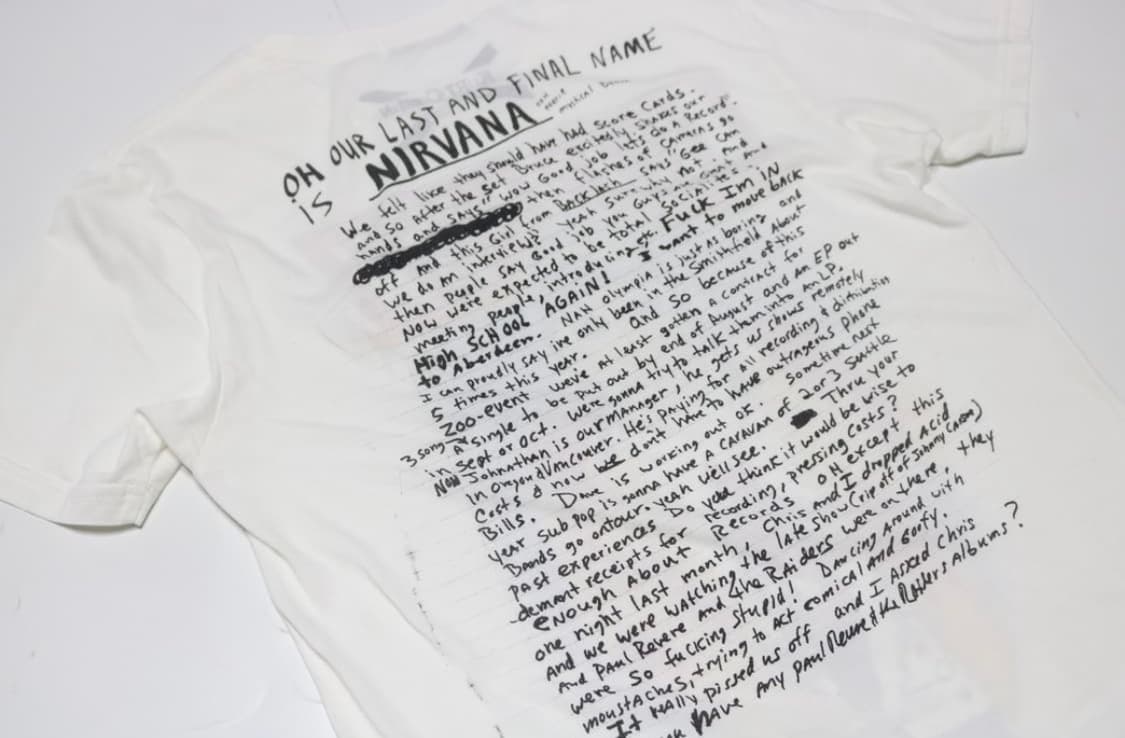 OH OUR LAST AND FINAL NAME
IS NIRVANA
We felt like they should have had Score Cards.
and so After the set Bruce excitedly shakes our
hands and SAys "wow Good job lets do A Record".
then flashes of CAmeras go
off And this Girl from BACKlash SAys "Gee CAN
we do An interview? yeah Sure why not. And
then people SAy Good job you Guys
Now were expected to be total socialites
meeting people, introducing etc. FUCK Im IN
High SCHOOL AGAIN! I want to move back
to Aberdeen. NAH olympia is just as boring and
I can proudly SAy ive only been in the Smithfield About
5 times this year. and so because of this
ZOO-event weve at least gotten A contract for
3 song A single to be put out by end of August and an EP out
in Sept or Oct. were gonna try to talk them into an LP.
Now Johnathan is our MANAger, he gets us shows remotely
In Oregon & VAncouver. He's PAying for all recording & distribution
Costs & now we dont have to have outrageous phone
Bills. Dave is working out ok. Sometime next
year Sub pop is gonna have a CARAVAN of 2 or 3 Seattle
Bands go on tour. yeah well see. Thru your
past experiences Do you think it would be wise to
demant receipts for recording, pressing Costs?
enough About Records Oh except this
one night last month, Chris and I dropped Acid
And we were watching the late show (rip off of Johnny CARSON)
And PAul Revere and the RAiders were on there, they
were So fucking stupid! DAncing Around with
moustAches, trying to Act comical And Goofy.
It really pissed us off and I Asked Chris
HAve Any PAul Revere & the RAiders Albums?